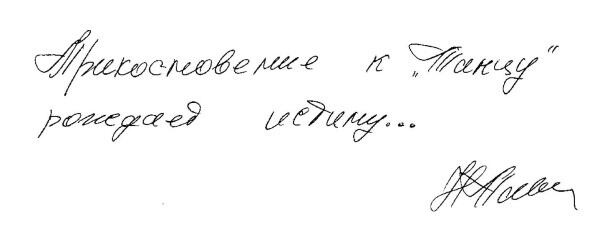 Прикосновение к „Танцу"
рождает истину...